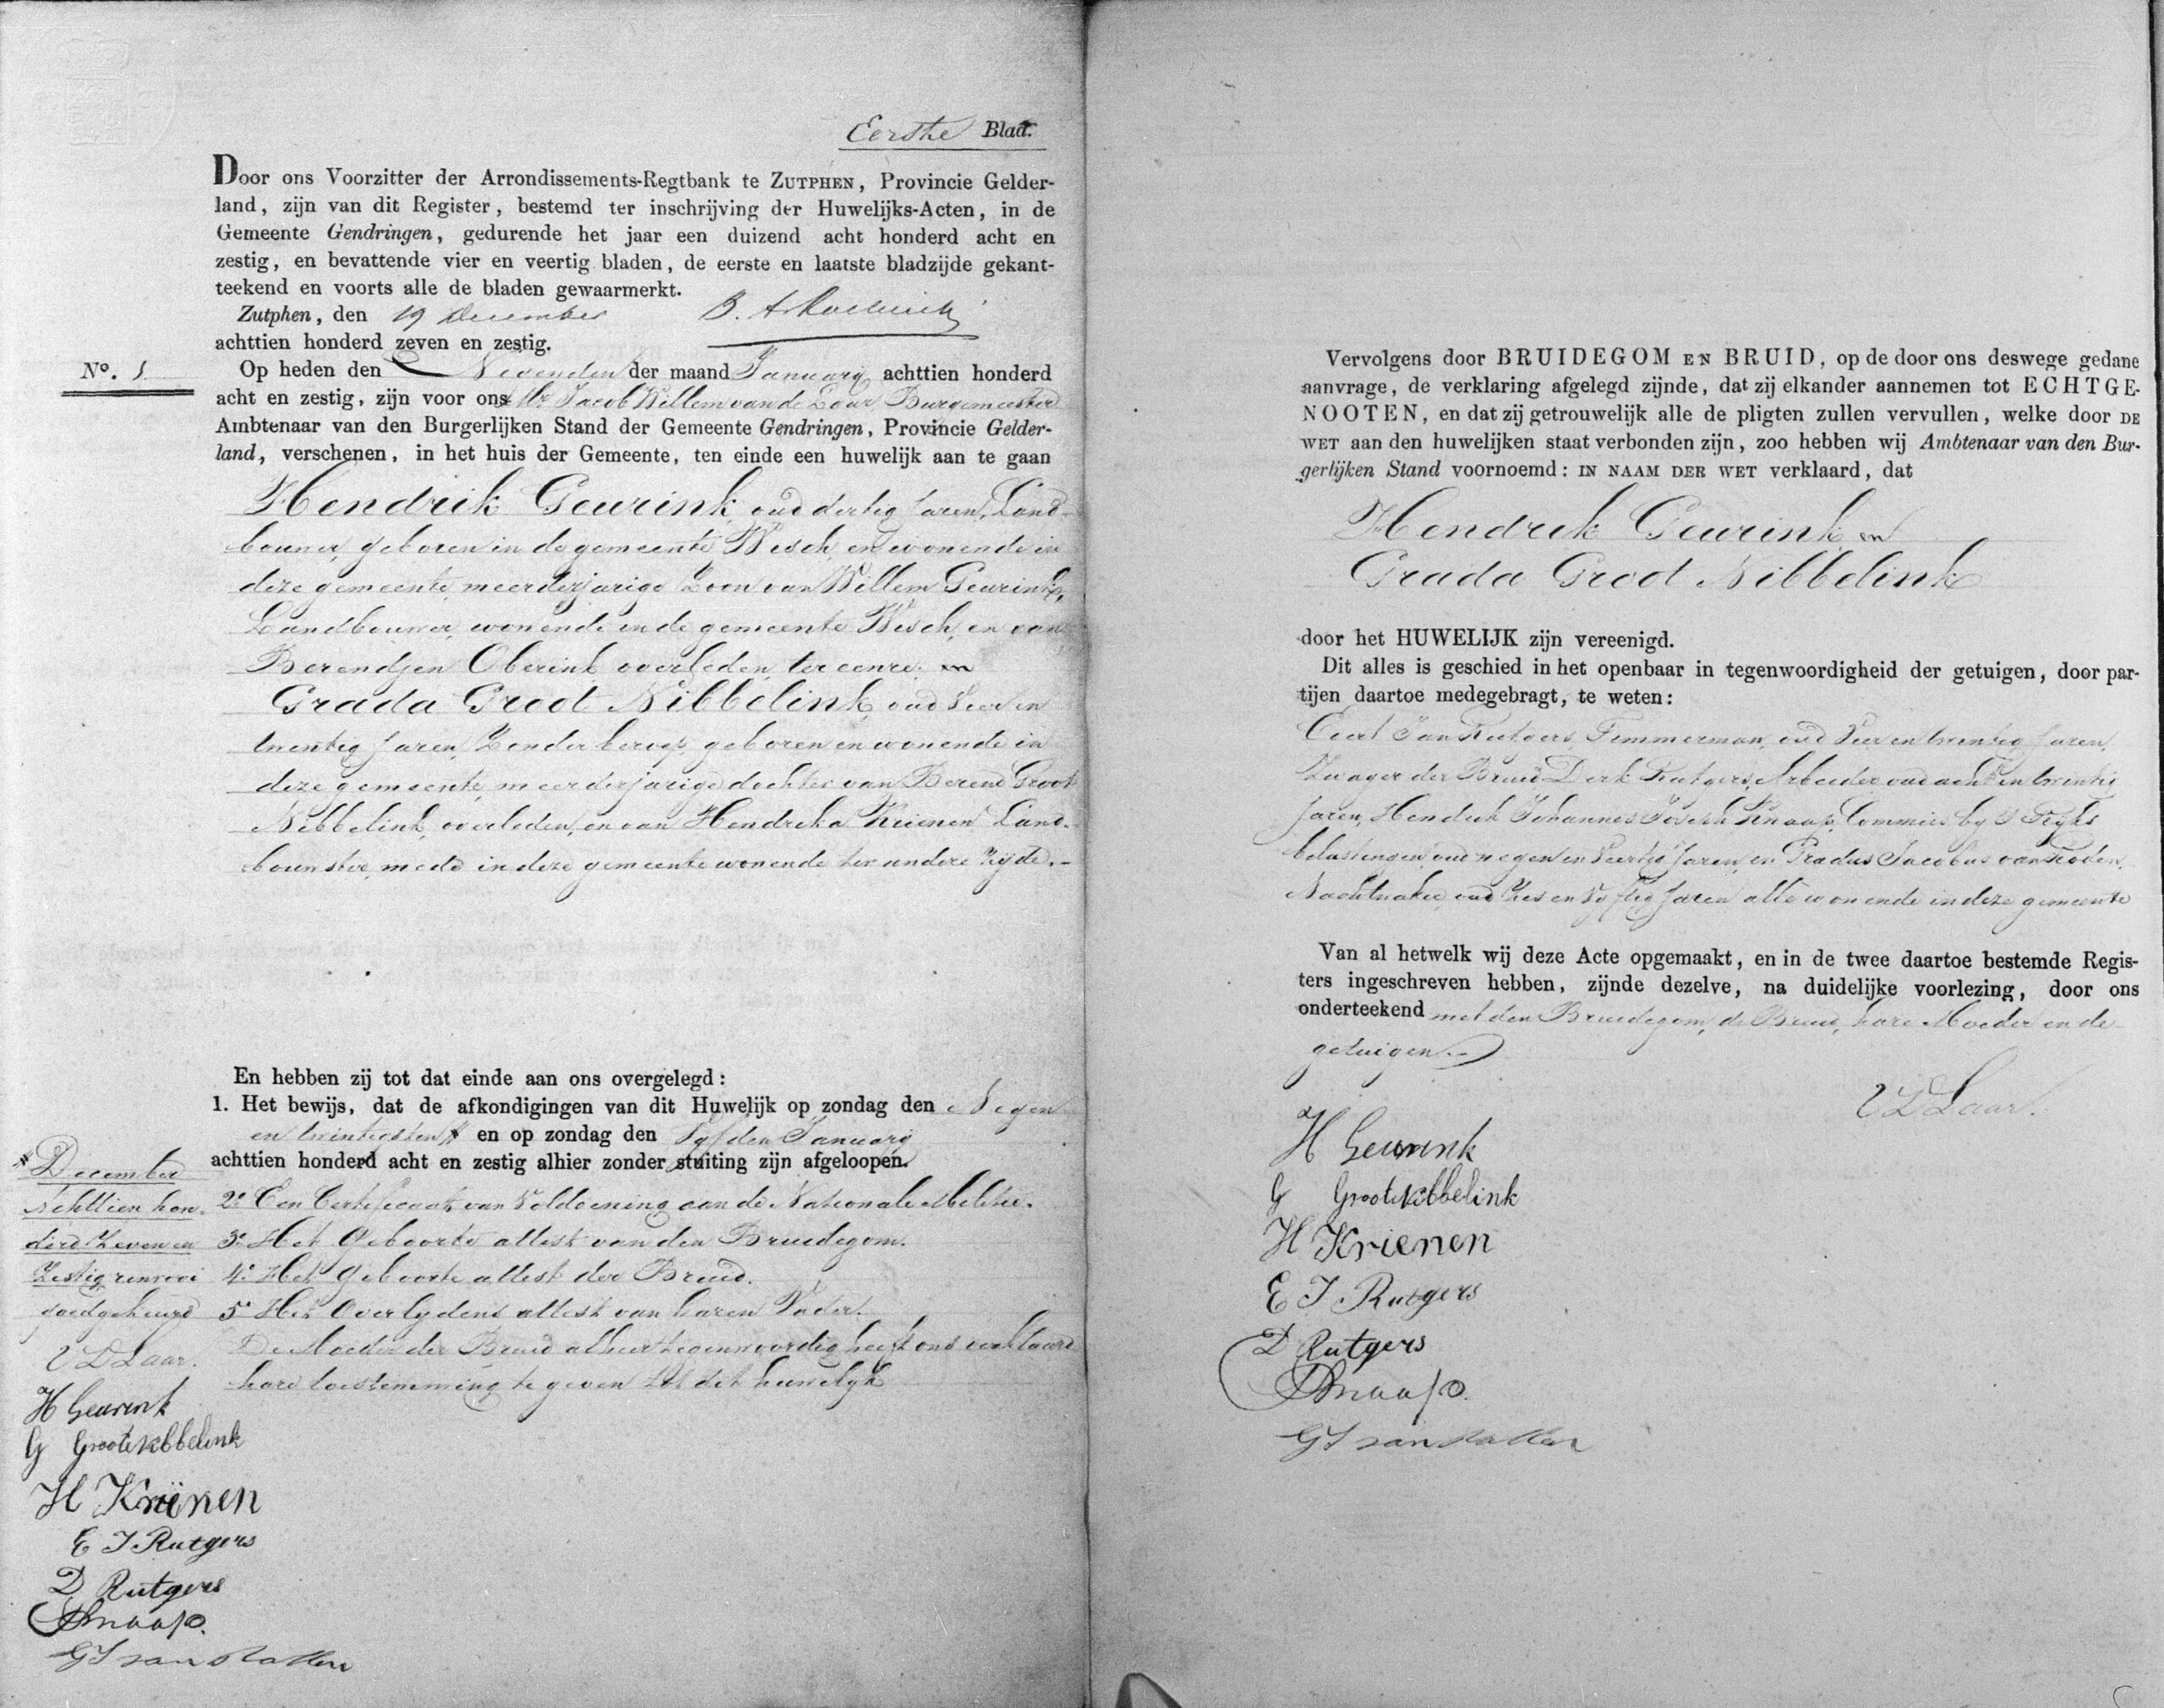 Eerste Blad.
Door ons Voorzitter der Arrondissements-Regtbank te ZUTPHEN, Provincie Gelder-
land, zijn van dit Register, bestemd ter inschrijving der Huwelijks-Acten, in de
Gemeente Gendringen, gedurende het jaar een duizend acht honderd acht en
zestig, en bevattende vier en veertig bladen, de eerste en laatste bladzijde gekant-
teekend en voorts alle de bladen gewaarmerkt.
Zutphen, den 19 December
achttien honderd zeven en zestig.
No. 1
Op heden den der maand Januarij achttien honderd
acht en zestig, zijn voor ons Mr Jacob Willem van de Laar, Burgemeester
Ambtenaar van den Burgerlijken Stand der Gemeente Gendringen, Provincie Gelder-
land, verschenen, in het huis der Gemeente, ten einde een huwelijk aan te gaan
Hendrik Geurink, oud dertig Jaren, Land-
bouwer, geboren in de gemeente Wisch, en wonende in
deze gemeente, meerderjarige Zoon van Willem Geurink,
Landbouwer, wonende in de gemeente Wisch, en van
Berendjen Oberink overleden, ter eenre; en
Grada Groot Nibbelink, oud Vier en
twintig Jaren, Zonder beroep, geboren en wonende in
deze gemeente, meerderjarige dochter van Berend Groot
Nibbelink, overleden, en van Hendrika Krienen Land-
bouwster, mede in deze gemeente wonende ter andere Zijde.-
En hebben zij tot dat einde aan ons overgelegd:
1. Het bewijs, dat de afkondigingen van dit Huwelijk op zondag den Negen
en twintigsten # en op zondag den Vijfden Januarij
achttien honderd acht en zestig alhier zonder stuiting zijn afgeloopen.
2e Een Certificaat van Voldoening aan de Nationale Militie.
3e Het Geboorte attest van den Bruidegom.
4e Het Geboorte attest der Bruid.
5e Het Overlijdens attest van haren Vader.
De Moeder der Bruid alhier tegenwoordig heeft ons verklaard
hare toestemming te geven tot dit huwelijk
# December
Achttien hon-
derd Zeven en
Zestig renvooi
goedgekeurd
VDLaar.
H Geurink
G Groot Nibbelink
H Kriënen
E J Rutgers
D Rutgers
Knaap.
GJ van
Vervolgens door BRUIDEGOM EN BRUID, op de door ons deswege gedane
aanvrage, de verklaring afgelegd zijnde, dat zij elkander aannemen tot ECHTGE-
NOOTEN, en dat zij getrouwelijk alle de pligten zullen vervullen, welke door DE
WET aan den huwelijken staat verbonden zijn, zoo hebben wij Ambtenaar van den Bur-
gerlijken Stand voornoemd: IN NAAM DER WET verklaard, dat
Hendrik Geurink en
Grada Groot Nibbelink
door het HUWELIJK zijn vereenigd.
Dit alles is geschied in het openbaar in tegenwoordigheid der getuigen, door par-
tijen daartoe medegebragt, te weten:
Evert Jan Rutgers, Timmerman, oud Vier en twintig Jaren,
Zwager der Bruid, Derk Rutgers, Arbeider oud acht en twintig
Jaren, Hendrik Johannes Joseph Knaap, Commies bij 's Rijks
belastingen, oud negen en Veertig Jaren, en Gradus Jacobus van
Nachtwaker, oud Zes en Vijftig Jaren alle wonende in deze gemeente
Van al hetwelk wij deze Acte opgemaakt, en in de twee daartoe bestemde Regis-
ters ingeschreven hebben, zijnde dezelve, na duidelijke voorlezing, door ons
onderteekend met den Bruidegom, de Bruid, hare Moeder en de
getuigen.-
VDLaar.
H Geurink
G Groot Nibbelink
H Krienen
E J Rutgers
D Rutgers
Knaap.
GJ van